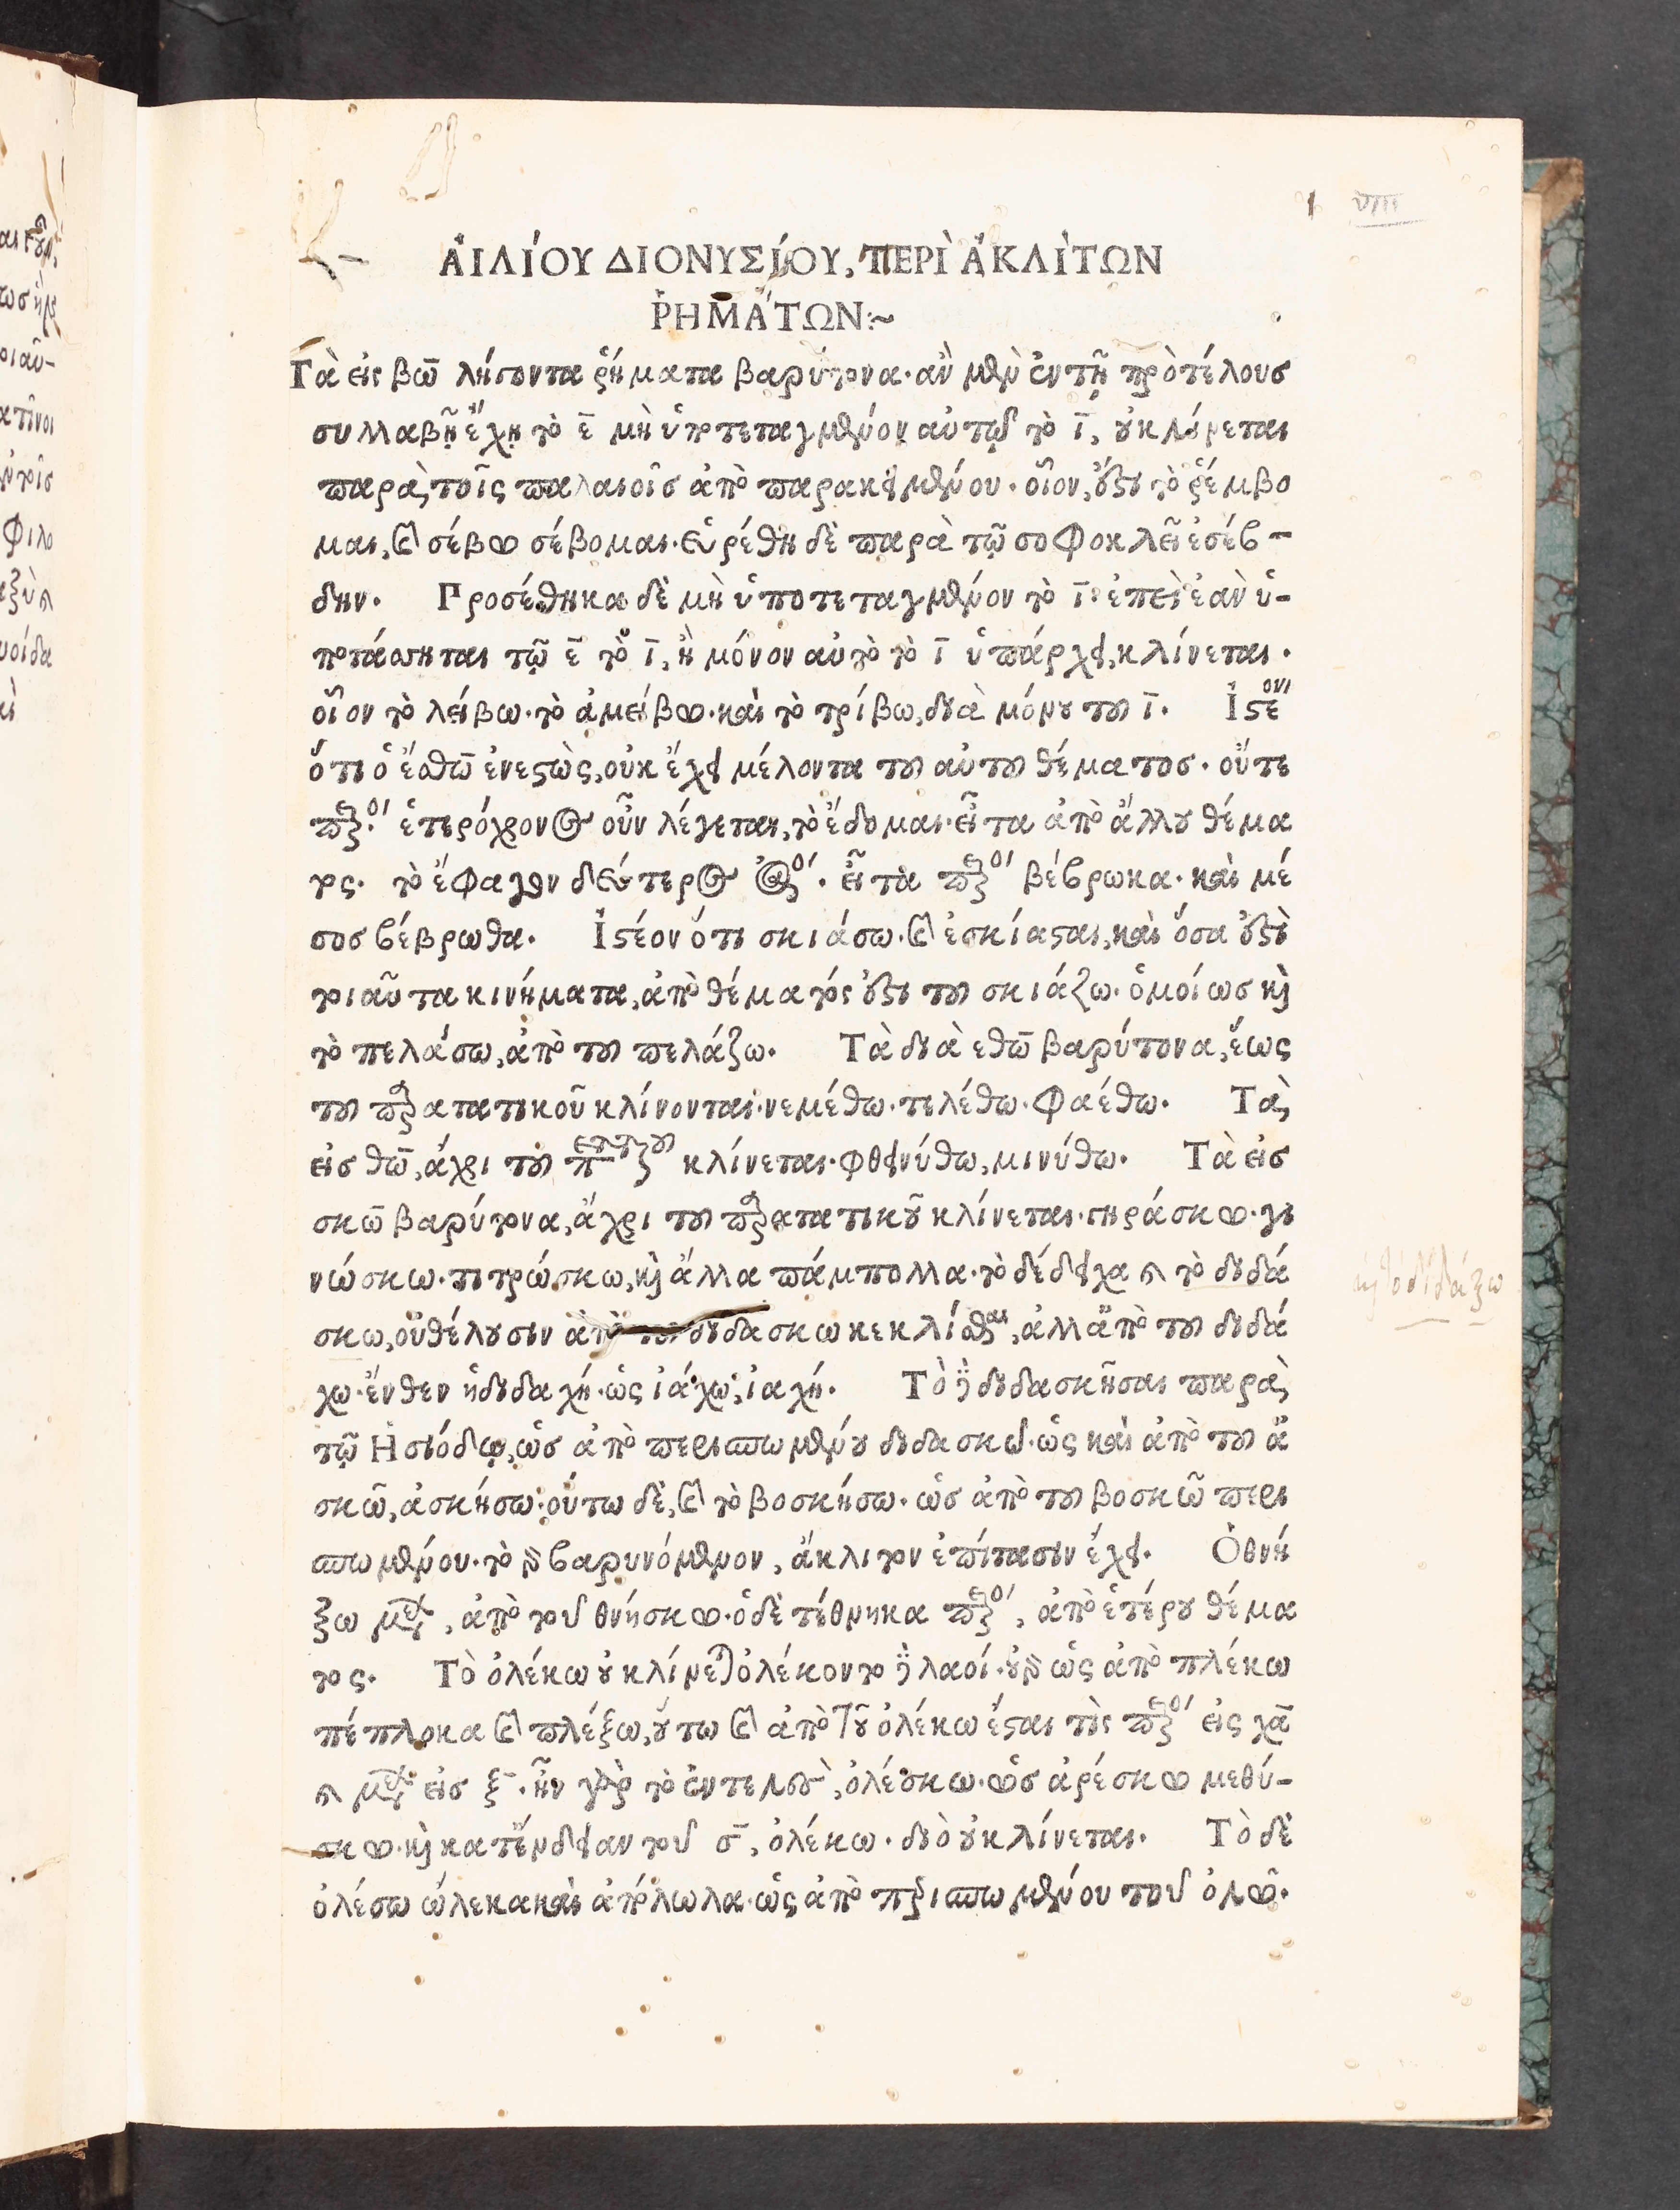 ΑἸΛΊΟΥ ΔΙΟΝΥΣΊΟΥ, ΠΕΡῚ ἈΚΛΊΤΩΝ
ῬΗΜΆΤΩΝ:~
Τὰ εἰς βω̄ λήγοντα ῥήματα βαρύτονα· ἂν μὲν ἐν τῇ πρὸ τέλους
συλλαβῇ ἔχῃ τὸ ε̄ μὴ ὑποτεταγμένον αὐτῷ τὸ ῑ, οὐ κλίνεται
παρὰ τοῖς παλαιοῖς ἀπὸ παρακειμένου· οἷον, ἐστι τὸ ῥέμβο
μαι, καὶ σέβω σέβομαι· εὑρέθη δὲ παρὰ τῷ σοφοκλεῖ ἐσέβ-
δην. Προσέθηκα δὲ μὴ ὑποτεταγμένον τὸ ῑ· ἐπεὶ ἐὰν ὑ-
ποτάσσηται τῷ ε̄ τὸ ῑ, ἢ μόνον αὐτὸ τὸ ῑ ὑπάρχει, κλίνεται·
οἷον τὸ λείβω· τὸ ἀμείβω· καὶ τὸ τρίβω, διὰ μόνου τοῦ ῑ. Ἰστέον
ὅτι ὁ ἔσθω̄ ἐνεστὼς, οὐκ ἔχει μέλοντα τοῦ αὐτοῦ θέματος· οὔτε
παρακείμενοι· ἑτερόχρονος οὖν λέγεται, τὸ ἔδομαι· εἶτα ἀπὸ ἄλλου θέμα
τος· τὸ ἔφαγον δεύτερος ἀόριστος· εἶτα παρακείμενος βέβρωκα· καὶ μέ
σος βέβρωθα. Ἰστέον ὅτι σκιάσω· καὶ ἐσκίασται, καὶ ὅσα ἐστὶ
τοιαῦτα κινήματα, ἀπὸ θέματός ἐστι τοῦ σκιάζω· ὁμοίως καὶ
τὸ πελάσω, ἀπὸ τοῦ πελάζω. Τὰ διὰ εθω̄ βαρύτονα, ἕως
τοῦ παρατατικοῦ κλίνονται· νεμέθω· τελέθω· φαέθω. Τὰ
εἰς θω̄, ἄχρι τοῦ κλίνεται· φθινύθω, μινύθω. Τὰ εἰς
σκω̄ βαρύτονα, ἄχρι τοῦ παρατατικοῦ κλίνεται· γηράσκω· γι
νώσκω· τιτρώσκω, καὶ ἄλλα πάμπολλα· τὸ δέδειχα καὶ τὸ διδά
σκω, οὐ θέλουσιν ἀπὸ τοῦ διδασκω κεκλίσθαι, ἀλλ' ἀπὸ τοῦ διδά
χω· ἔνθεν ἡ διδαχή· ὡς ἰάχω, ἰαχή. Τὸ δὲ διδασκῆσαι παρὰ
τῷ Ἡσιόδῳ, ὡς ἀπὸ περισπωμένου διδασκῶ· ὡς καὶ ἀπὸ τοῦ ἀ
σκῶ, ἀσκήσω· οὕτω δὲ, καὶ τὸ βοσκήσω· ὡς ἀπὸ τοῦ βοσκῶ περι
σπωμένου· τὸ γὰρ βαρυνόμενον, ἄκλιτον ἐπίτασιν ἔχει. Ὁ θνή
ξω μέλλων, ἀπὸ τοῦ θνήσκω· ὁ δὲ τέθνηκα παρακείμενος, ἀπὸ ἑτέρου θέμα
τος. Τὸ ὀλέκω οὐ κλίνεται ὀλέκοντο δὲ λαοί· οὐ γὰρ ὡς ἀπὸ πλέκω
πέπλοκα καὶ πλέξω, οὕτω καὶ ἀπὸ τοῦ ὀλέκω ἔσται τὶς παρακείμενος εἰς χᾱ
καὶ μέλλων εἰς ξ̄· ἦν γὰρ τὸ ἐντελὲς, ὀλέσκω· ὡς ἀρέσκω μεθύ-
σκω· καὶ κατ' ἔνδειαν τοῦ σ̄, ὀλέκω· διὸ οὐ κλίνεται. Τὸ δὲ
ὀλέσω ὤλεκα καὶ ἀπόλωλα· ὡς ἀπὸ περισπωμένου τοῦ ὀλῶ.
1 VIII